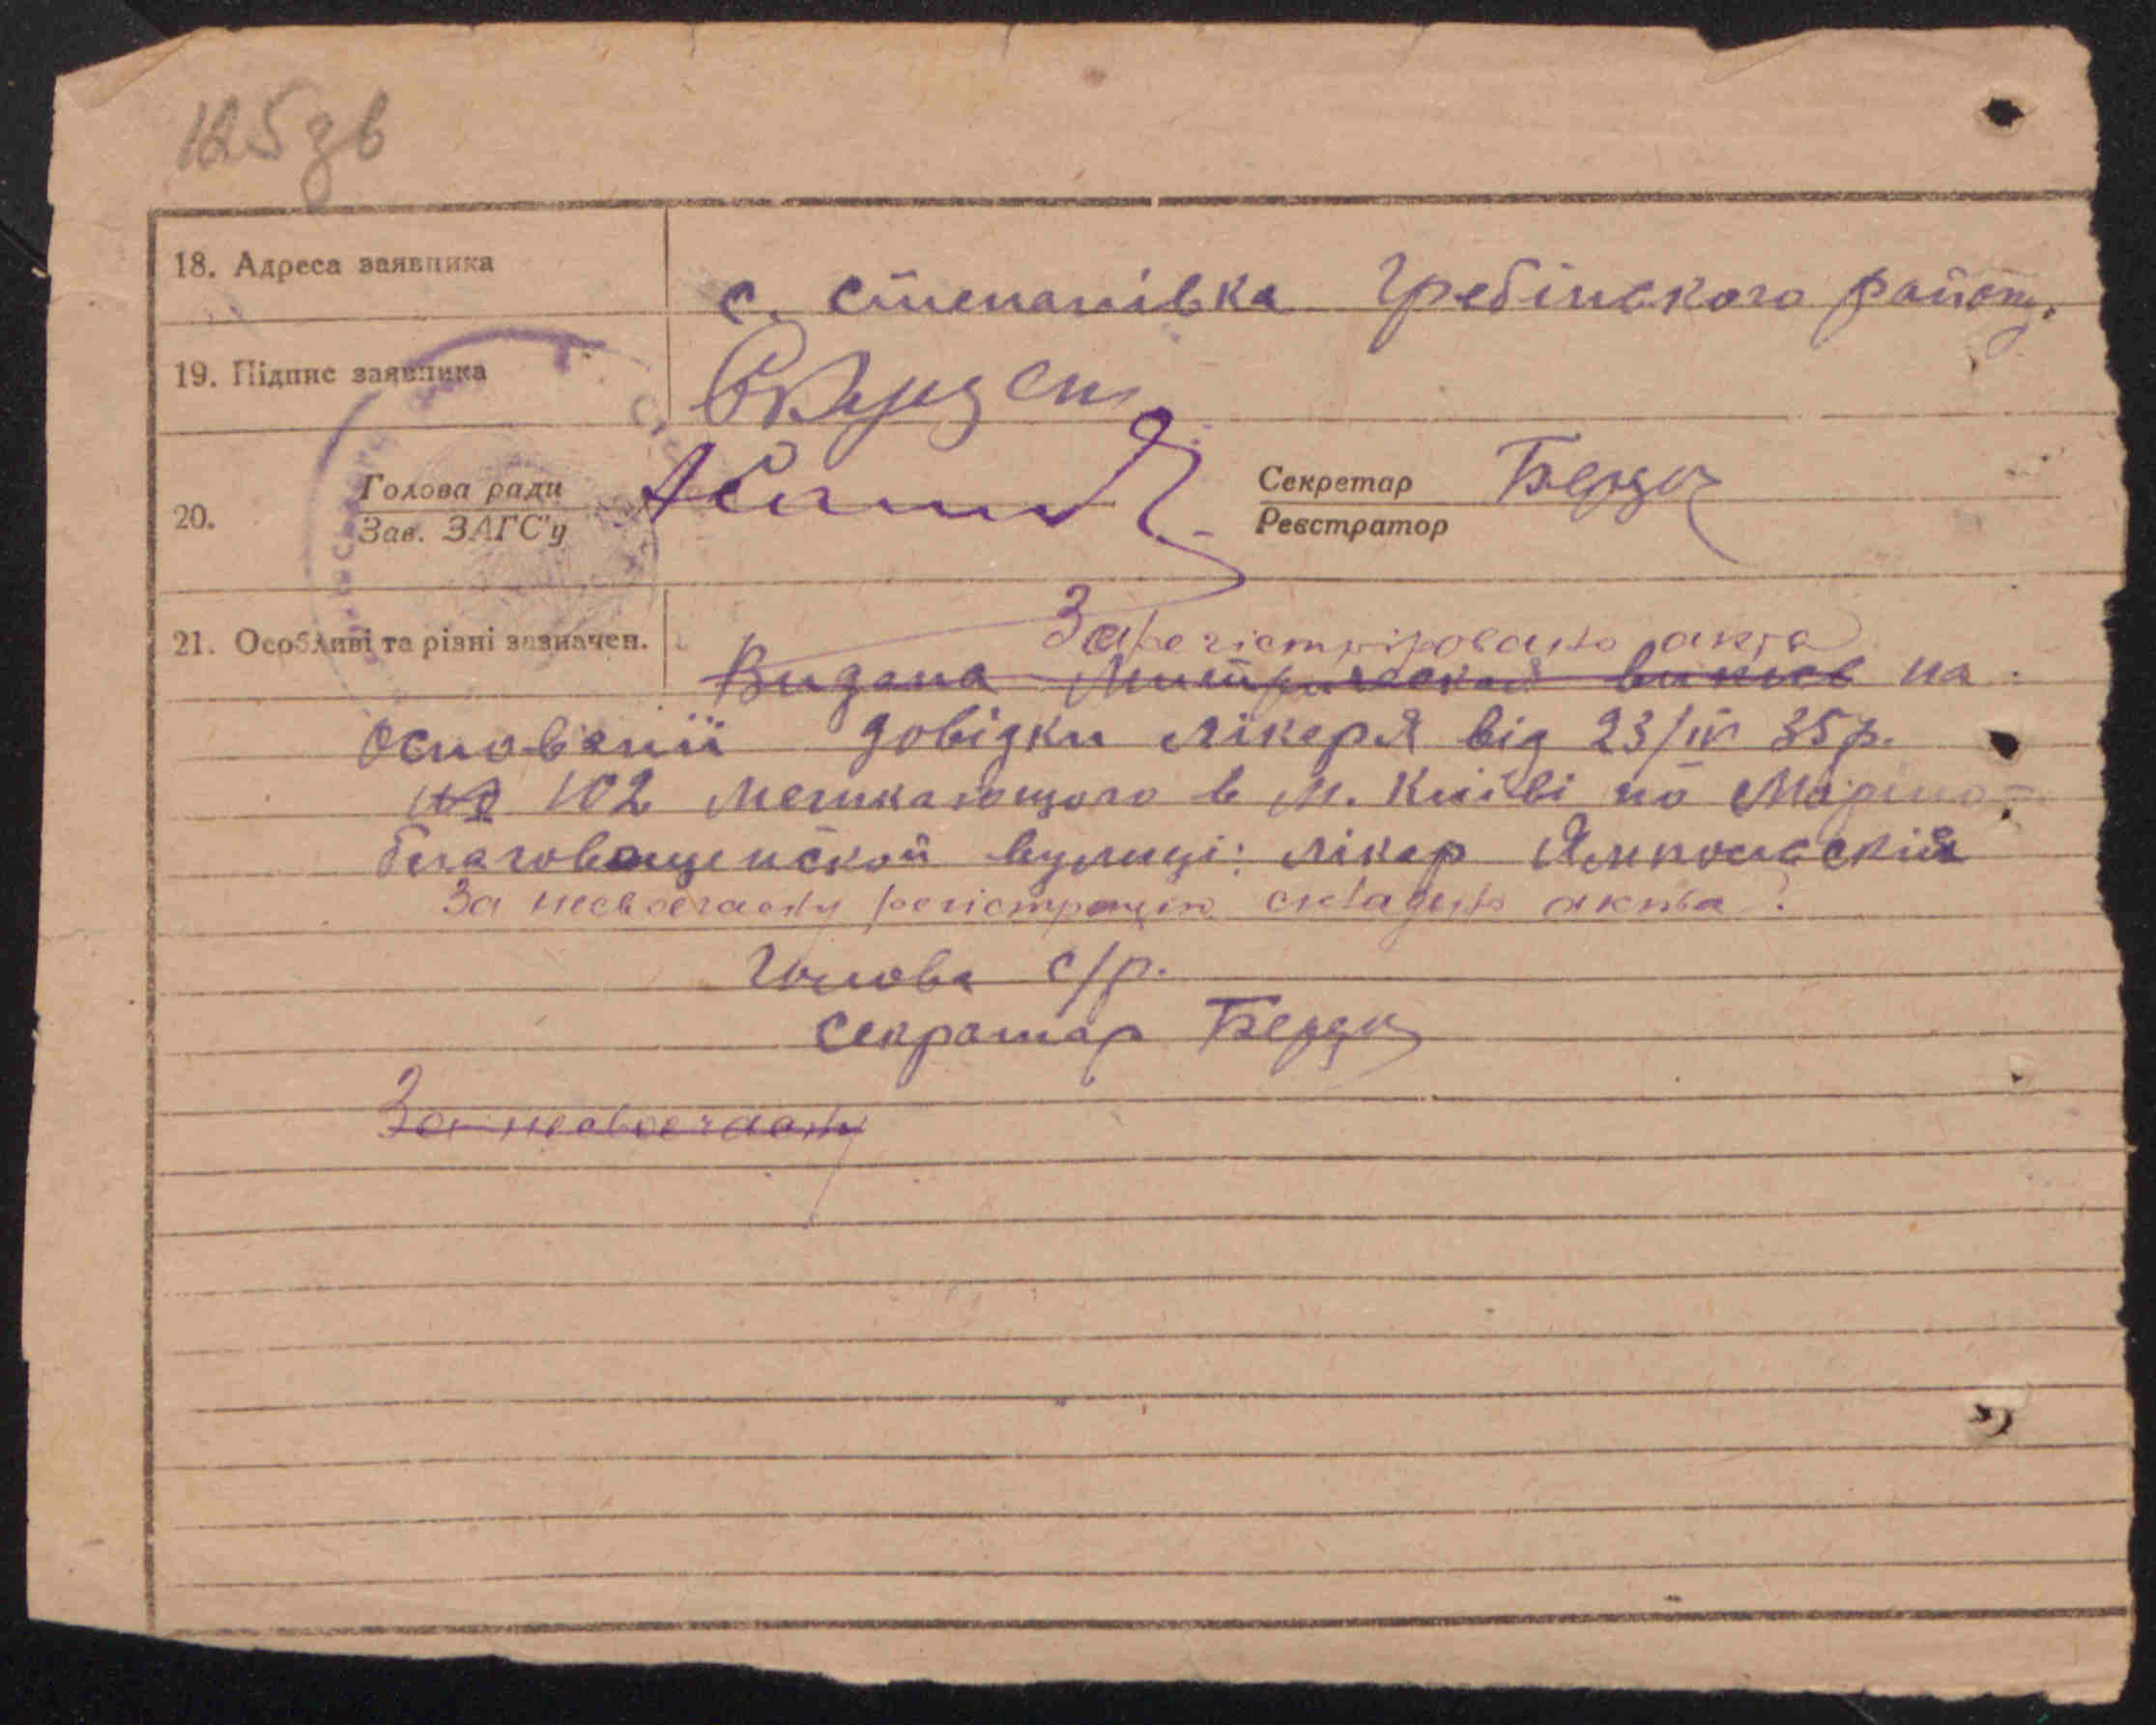 125 зв
18. Адреса заявника
с. степанівка Гребінского району.
19. Підпис заявника
20.
Голова ради
Зав. ЗАГС'у
Секретар
Реєстратор
Берда
21. Особливі та різні зазначен.
Зарегістріровано акта
Видана Митрическая випись на
основаніі довідки лікаря від 23/IV 35р.
№ 102 мешкающого в м. Київі по Маріино-
благовещенской вулиці: лікар Ямпольскій
За несвоечасну регістрацію складено акта
Голова с/р.
Секратар Берда
За несвоечасну